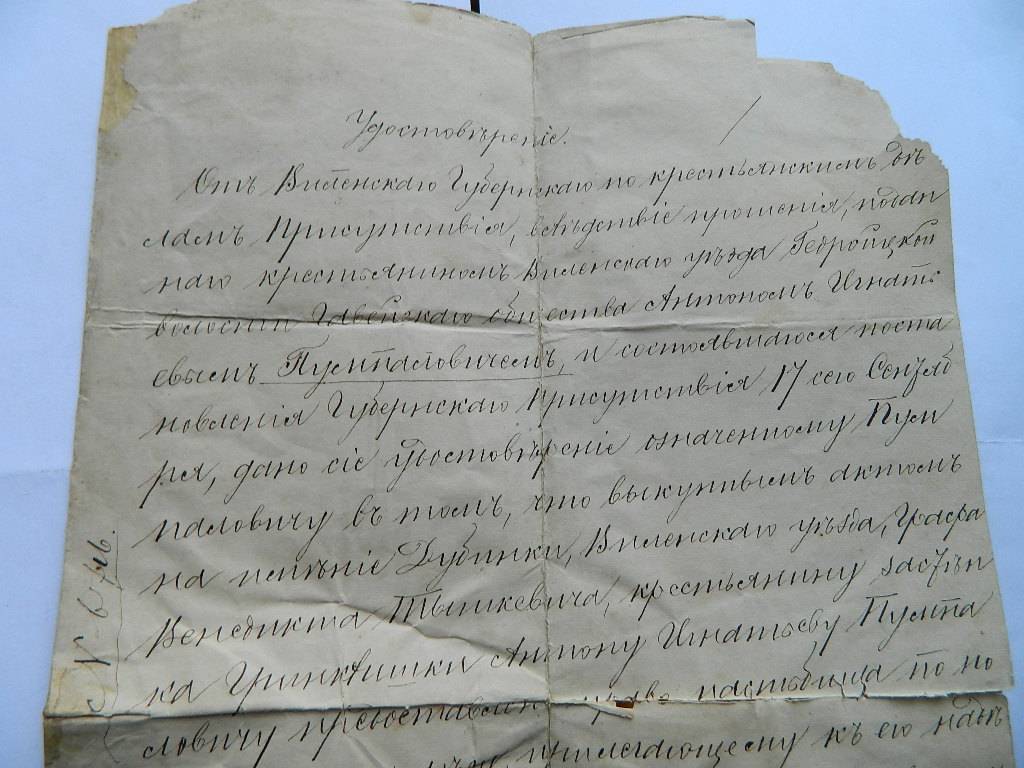 Удостовѣреніе.
Отъ Виленскаго Губернскаго по крестьянскимъ дѣ
ламъ Присутствія, вслѣдствіе прошенія, подан
наго крестьяниномъ Виленскаго уѣзда Гедройцкой
волости общества Антономъ Игнать
евымъ Пумпаловичемъ, и состоявшагося поста
новленія Губернскаго Присутствія 17 сего Сентяб
ря, дано сіе удостовѣреніе означенному Пум
паловичу въ томъ, что выкупнымъ актомъ
на имѣніе Дубинки, Виленскаго уѣзда, Графа
Бенедикта Тышкевича, крестьянину застѣн
ка Гринкишки Антону Игнатьеву Пумпа
ловичу предоставлено право пастбища по
прилегающему къ его надѣ